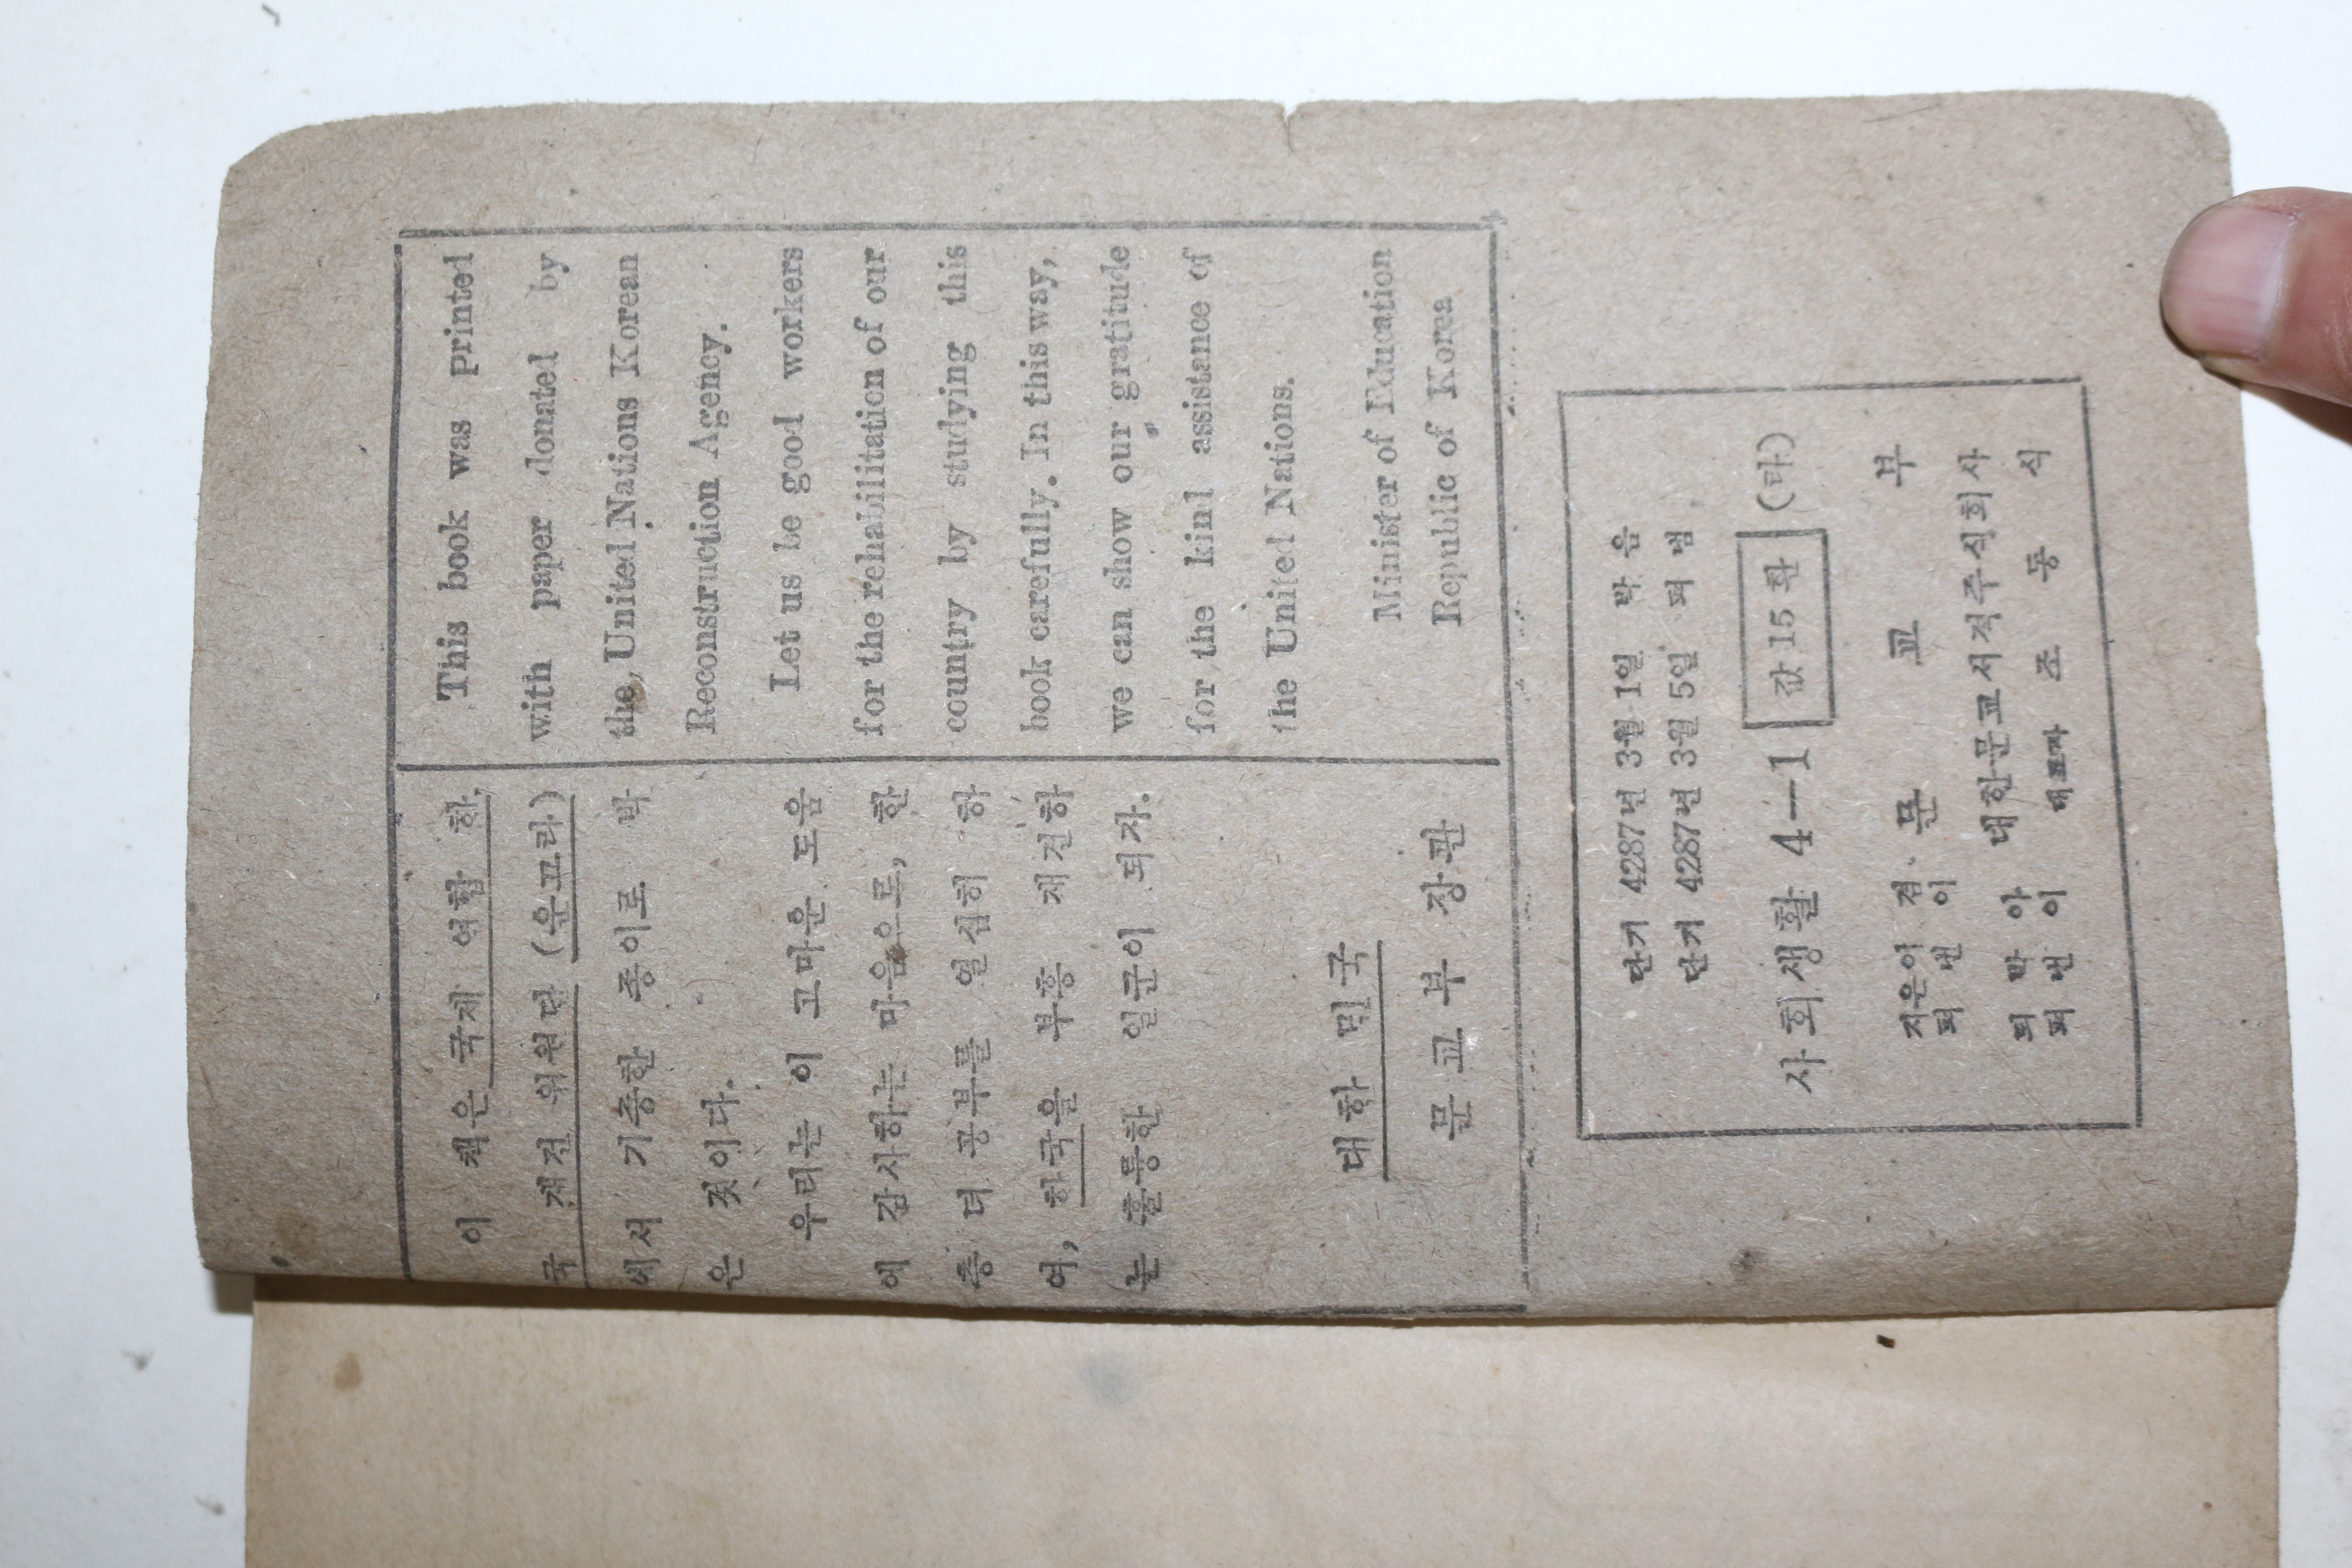 이 책은 국제 연합 한
국 재건 위원단 (운끄라)
에서 기증한 종이로 박
은 것이다.
우리는 이 고마운 도움
에 감사하는 마음으로, 한
층 더 공부를 열심히 하
여, 한국을 부흥 재건하
는 훌륭한 일군이 되자.
대한 민국
문교부 장관
This book was printed
with paper donated by
the United Nations Korean
Reconstruction Agency.
Let us be good workers
for the rehabilitation of our
country by studying this
book carefully. In this way,
we can show our gratitude
for the kind assistance of
the United Nations.
Minister of Education
Republic of Korea
단기 4287년 3월 1일 박음
단기 4287년 3월 5일 펴냄
사회생활 4—1 값 15 환 (타)
지은이 겸
펴낸이 문교부
되박아
펴낸이 대한문교서적주식회사
대표자 조동식